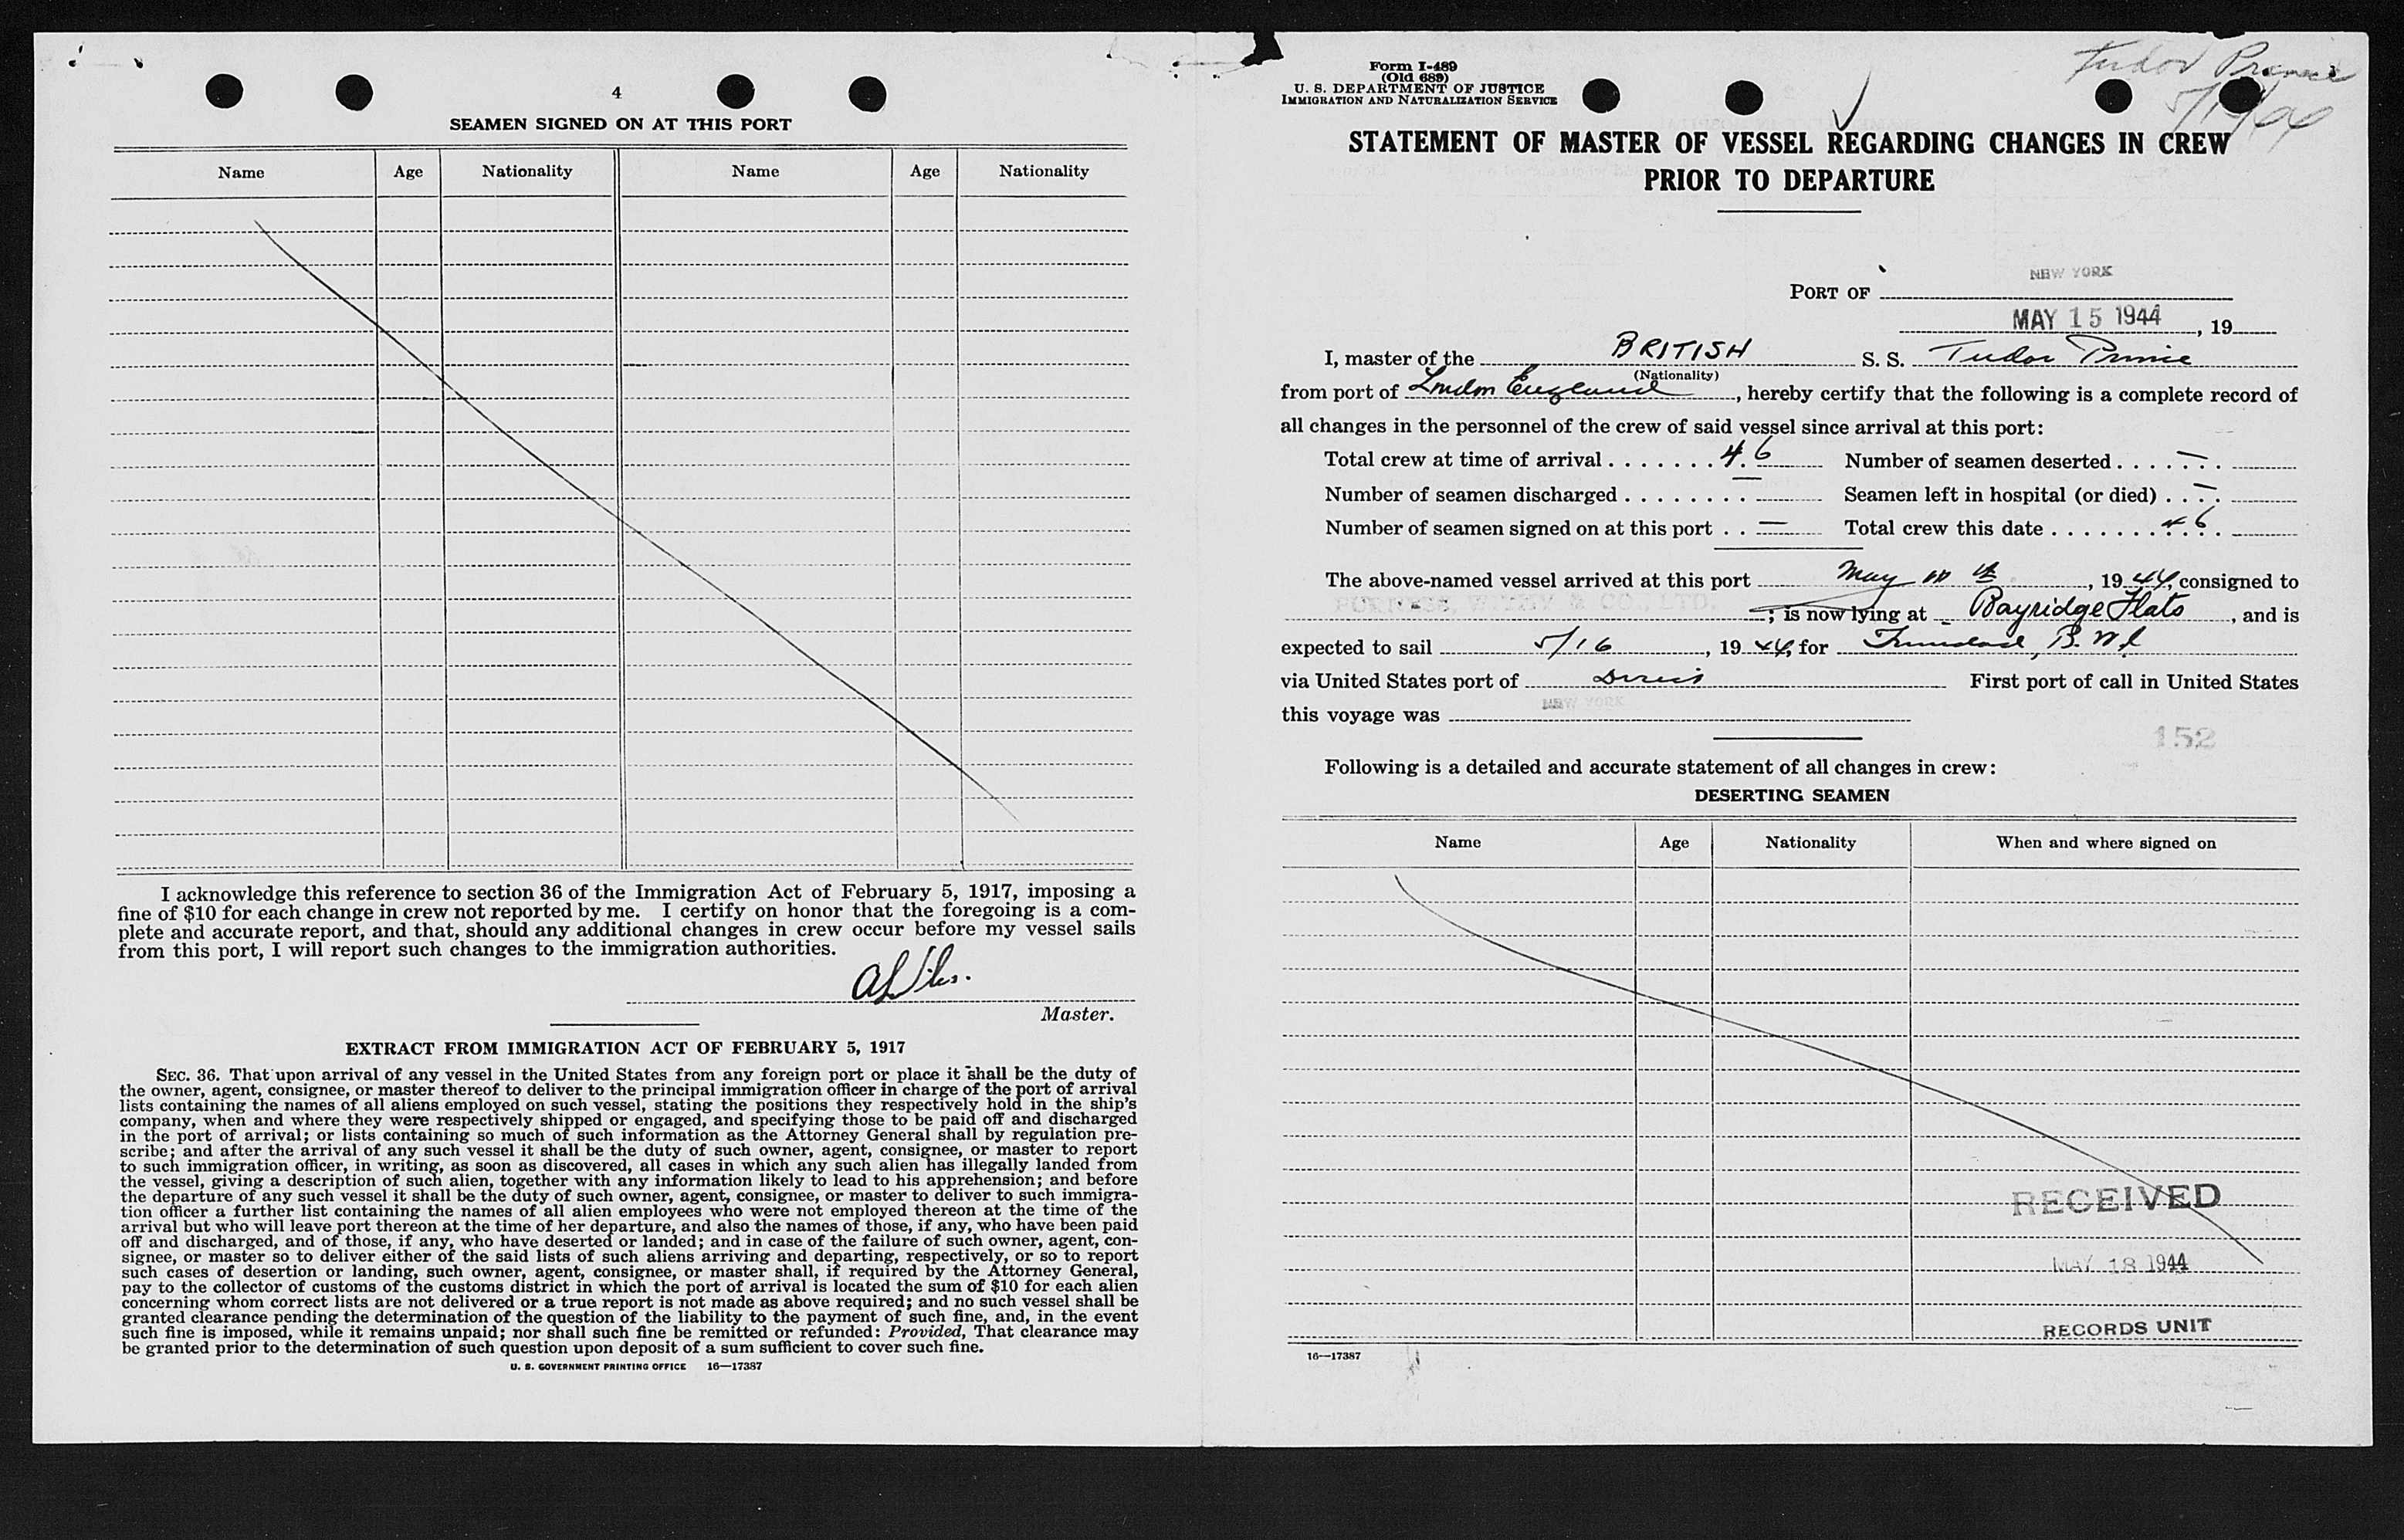 4
SEAMEN SIGNED ON AT THIS PORT
Name Age Nationality Name Age Nationality
I acknowledge this reference to section 36 of the Immigration Act of February 5, 1917, imposing a
fine of $10 for each change in crew not reported by me. I certify on honor that the foregoing is a com-
plete and accurate report, and that, should any additional changes in crew occur before my vessel sails
from this port, I will report such changes to the immigration authorities.
Master.
EXTRACT FROM IMMIGRATION ACT OF FEBRUARY 5, 1917
SEC. 36. That upon arrival of any vessel in the United States from any foreign port or place it shall be the duty of
the owner, agent, consignee, or master thereof to deliver to the principal immigration officer in charge of the port of arrival
lists containing the names of all aliens employed on such vessel, stating the positions they respectively hold in the ship's
company, when and where they were respectively shipped or engaged, and specifying those to be paid off and discharged
in the port of arrival; or lists containing so much of such information as the Attorney General shall by regulation pre-
scribe; and after the arrival of any such vessel it shall be the duty of such owner, agent, consignee, or master to report
to such immigration officer, in writing, as soon as discovered, all cases in which any such alien has illegally landed from
the vessel, giving a description of such alien, together with any information likely to lead to his apprehension; and before
the departure of any such vessel it shall be the duty of such owner, agent, consignee, or master to deliver to such immigra-
tion officer a further list containing the names of all alien employees who were not employed thereon at the time of the
arrival but who will leave port thereon at the time of her departure, and also the names of those, if any, who have been paid
off and discharged, and of those, if any, who have deserted or landed; and in case of the failure of such owner, agent, con-
signee, or master so to deliver either of the said lists of such aliens arriving and departing, respectively, or so to report
such cases of desertion or landing, such owner, agent, consignee, or master shall, if required by the Attorney General,
pay to the collector of customs of the customs district in which the port of arrival is located the sum of $10 for each alien
concerning whom correct lists are not delivered or a true report is not made as above required; and no such vessel shall be
granted clearance pending the determination of the question of the liability to the payment of such fine, and, in the event
such fine is imposed, while it remains unpaid; nor shall such fine be remitted or refunded: Provided, That clearance may
be granted prior to the determination of such question upon deposit of a sum sufficient to cover such fine.
U. S. GOVERNMENT PRINTING OFFICE 16—17387
Tudor Prince
Form I-489
(Old 689)
U. S. DEPARTMENT OF JUSTICE
IMMIGRATION AND NATURALIZATION SERVICE
STATEMENT OF MASTER OF VESSEL REGARDING CHANGES IN CREW
PRIOR TO DEPARTURE
PORT OF NEW YORK
MAY 15 1944, 19
I, master of the BRITISH S. S. Tudor Prince
(Nationality)
from port of London England, hereby certify that the following is a complete record of
all changes in the personnel of the crew of said vessel since arrival at this port:
Total crew at time of arrival 46 Number of seamen deserted —
Number of seamen discharged — Seamen left in hospital (or died) —
Number of seamen signed on at this port — Total crew this date 46
The above-named vessel arrived at this port May, 1944, consigned to
FURNESS, WITHY & CO., LTD.; is now lying at Bayridge Flats, and is
expected to sail 5/16, 1944, for Trinidad, B.W.I
via United States port of Direct First port of call in United States
this voyage was NEW YORK
152
Following is a detailed and accurate statement of all changes in crew:
DESERTING SEAMEN
Name Age Nationality When and where signed on
RECEIVED
MAY 18 1944
RECORDS UNIT
16—17387